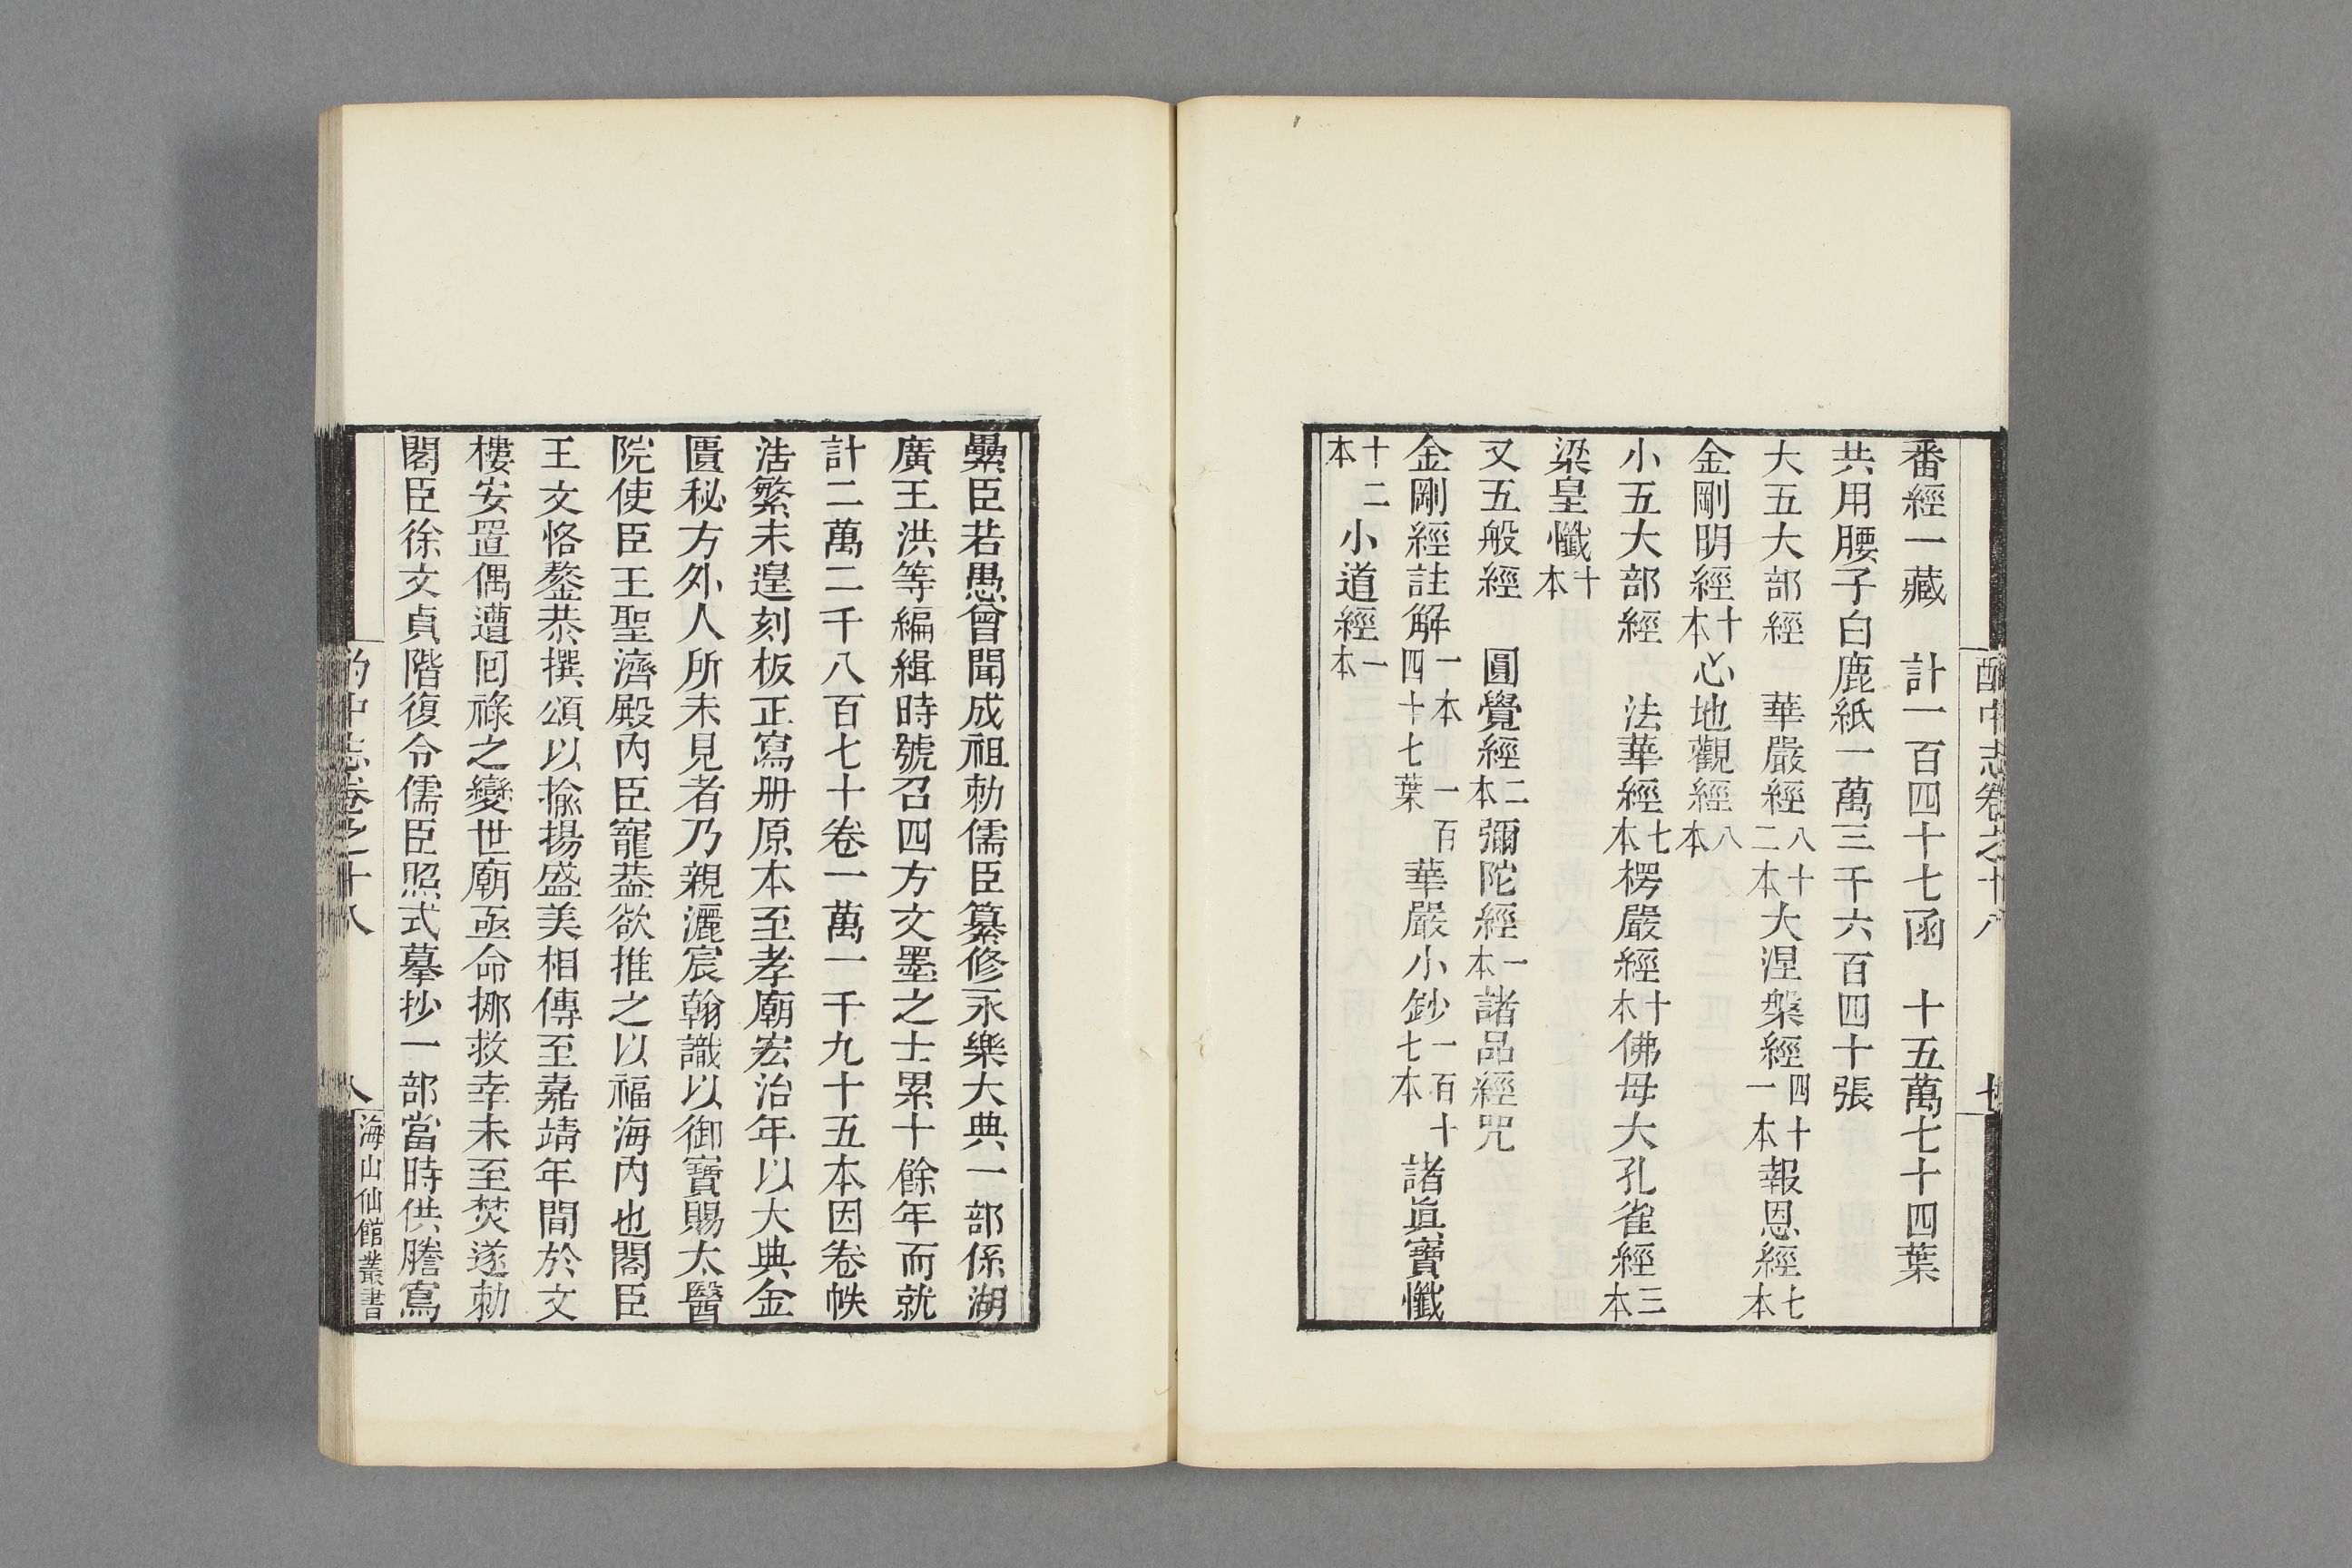 酌中志卷之十八
七
番經一藏　計一百四十七函　十五萬七十四葉
共用腰子白鹿紙一萬三千六百四十張
大五大部經　華嚴經八十二本大涅槃經四十一本報恩經七本
金剛明經十本心地觀經八本
小五大部經　法華經七本楞嚴經十本佛母大孔雀經三本
梁皇懺十本
又五般經　圓覺經二本彌陀經一本諸品經咒
金剛經註解一本一百四十七葉華嚴小鈔一百十七本諸眞寶懺
十二本小道經一本
纍臣若愚曾聞成祖勅儒臣纂修永樂大典一部係湖
廣王洪等編緝時號召四方文墨之士累十餘年而就
計二萬二千八百七十卷一萬一千九十五本因卷帙
浩繁未遑刻板正寫册原本至孝廟宏治年以大典金
匱秘方外人所未見者乃親灑宸翰識以御寶賜太醫
院使臣王聖濟殿內臣寵葢欲推之以福海內也閣臣
王文恪鏊恭撰頌以揄揚盛美相傳至嘉靖年間於文
樓安置偶遭回祿之變世廟亟命挪救幸未至焚遂勅
閣臣徐文貞階復令儒臣照式摹抄一部當時供謄寫
酌中志卷之十八
八
海山仙館叢書